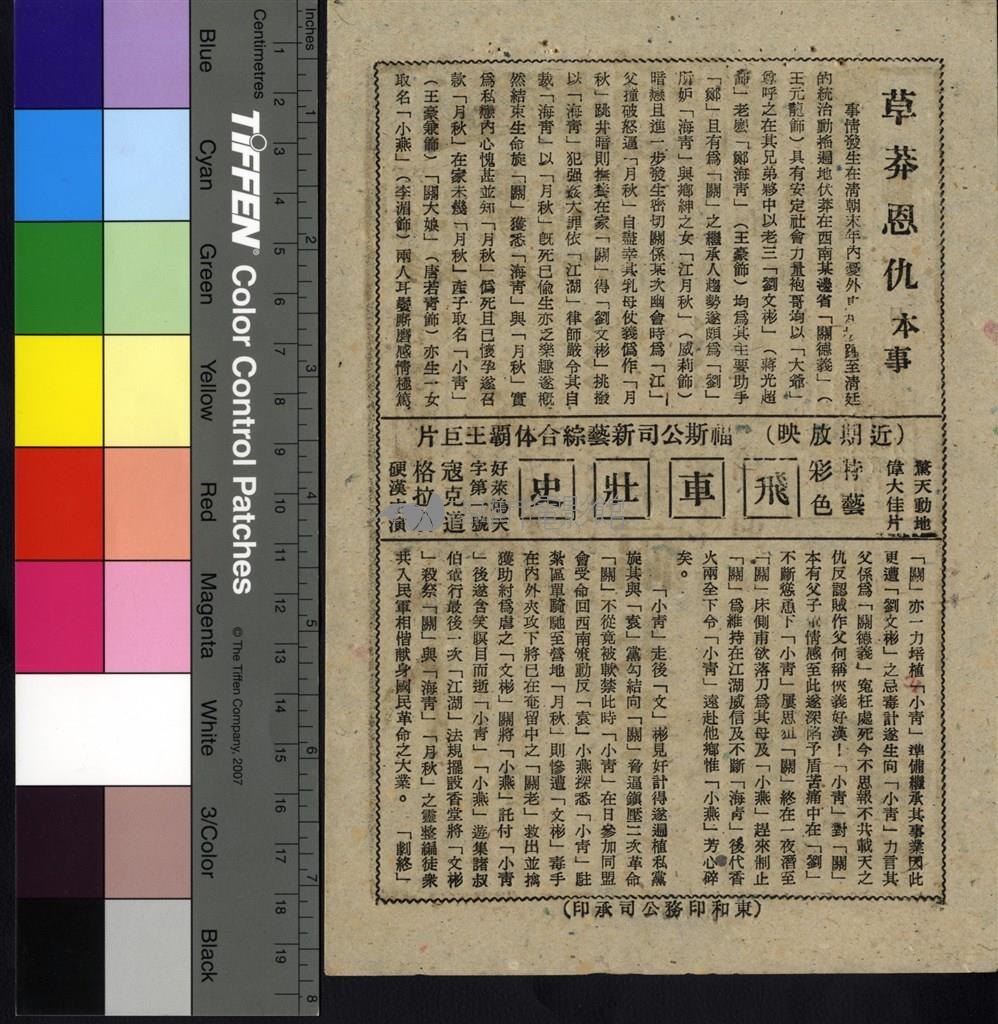 草莽恩仇本事
事情發生在清朝末年內憂外
的統治動搖遍地伏莽在西南某邊省「關德義」(
王元龍飾)具有安定社會力量袍哥均以「大爺」
尊呼之在其兄弟夥中以老三「劉文彬」(蔣光超
飾」老么「鄭海青」(王豪飾)均為其主要助手
「鄭」且有為「關」之繼承人趨勢遂頗為「劉」
所妒「海青」與鄉紳之女「江月秋」(威莉飾)
暗戀且進一步發生密切關係某次幽會時為「江」
父撞破怒逼「月秋」自盡幸其乳母仗義偽作「月
秋」跳井暗則撫養在家「關」得「劉文彬」挑撥
以「海青」犯强姦大罪依「江湖」律師嚴令其自
裁「海青」以「月秋」既死已偷生亦乏樂趣遂慨
然結束生命旋「關」獲悉「海青」與「月秋」實
為私戀內心愧甚並知「月秋」偽死且已懷孕遂召
款「月秋」在家未幾「月秋」產子取名「小青」
(王豪兼飾)「關大娘」(唐若青飾)亦生一女
取名「小燕」(李湄飾)兩人耳鬢廝磨感情極篤
(近期放映)福斯公司新藝綜合体覇王巨片
驚天動地
偉大佳片
特藝
彩色
飛車壯史
好萊塢天
字第一號
寇克道
格拉斯
硬漢主演
「關」亦一力培植「小青」準備繼承其事業因此
更遭「劉文彬」之忌毒計遂生向「小青」力言其
父係為「關德義」冤枉處死今不思報不共載天之
仇反認賊作父何稱俠義好漢!「小青」對「關」
本有父子 情感至此遂深陷予盾苦痛中在「劉」
不斷慫恿下「小青」屢思狙「關」終在一夜潛至
「關」床側甫欲落刀為其母及「小燕」趕來制止
「關」為維持在江湖威信及不斷「海青」後代香
火兩全下令「小青」遠赴他鄉惟「小燕」芳心碎
矣。
「小青」走後「文」彬見奸計得遂遍植私黨
旋其與「袁」黨勾結向「關」脅逼鎮壓二次革命
「關」不從竟被軟禁此時「小青」在日參加同盟
會受命回西南策動反「袁」小燕探悉「小青」駐
紮區單騎馳至營地「月秋」則慘遭「文彬」毒手
在內外夾攻下將已在奄留中之「關老」救出並擒
獲助紂為虐之「文彬」關將「小燕」託付「小青
」後遂含笑瞑目而逝「小青」「小燕」遊集諸叔
伯輩行最後一次「江湖」法規擺設香堂將「文彬
」殺祭「關」與「海青」「月秋」之靈整編徒衆
共入民軍相偕献身國民革命之大業。「劇終」
(東和印務公司承印)
Inches
Centimetres
TIFFEN® Color Control Patches
© The Tiffen Company, 2007
Blue
Cyan
Green
Yellow
Red
Magenta
White
3/Color
Black
1 2 3 4 5 6 7 8 9 10 11 12 13 14 15 16 17 18 19
1 2 3 4 5 6 7 8